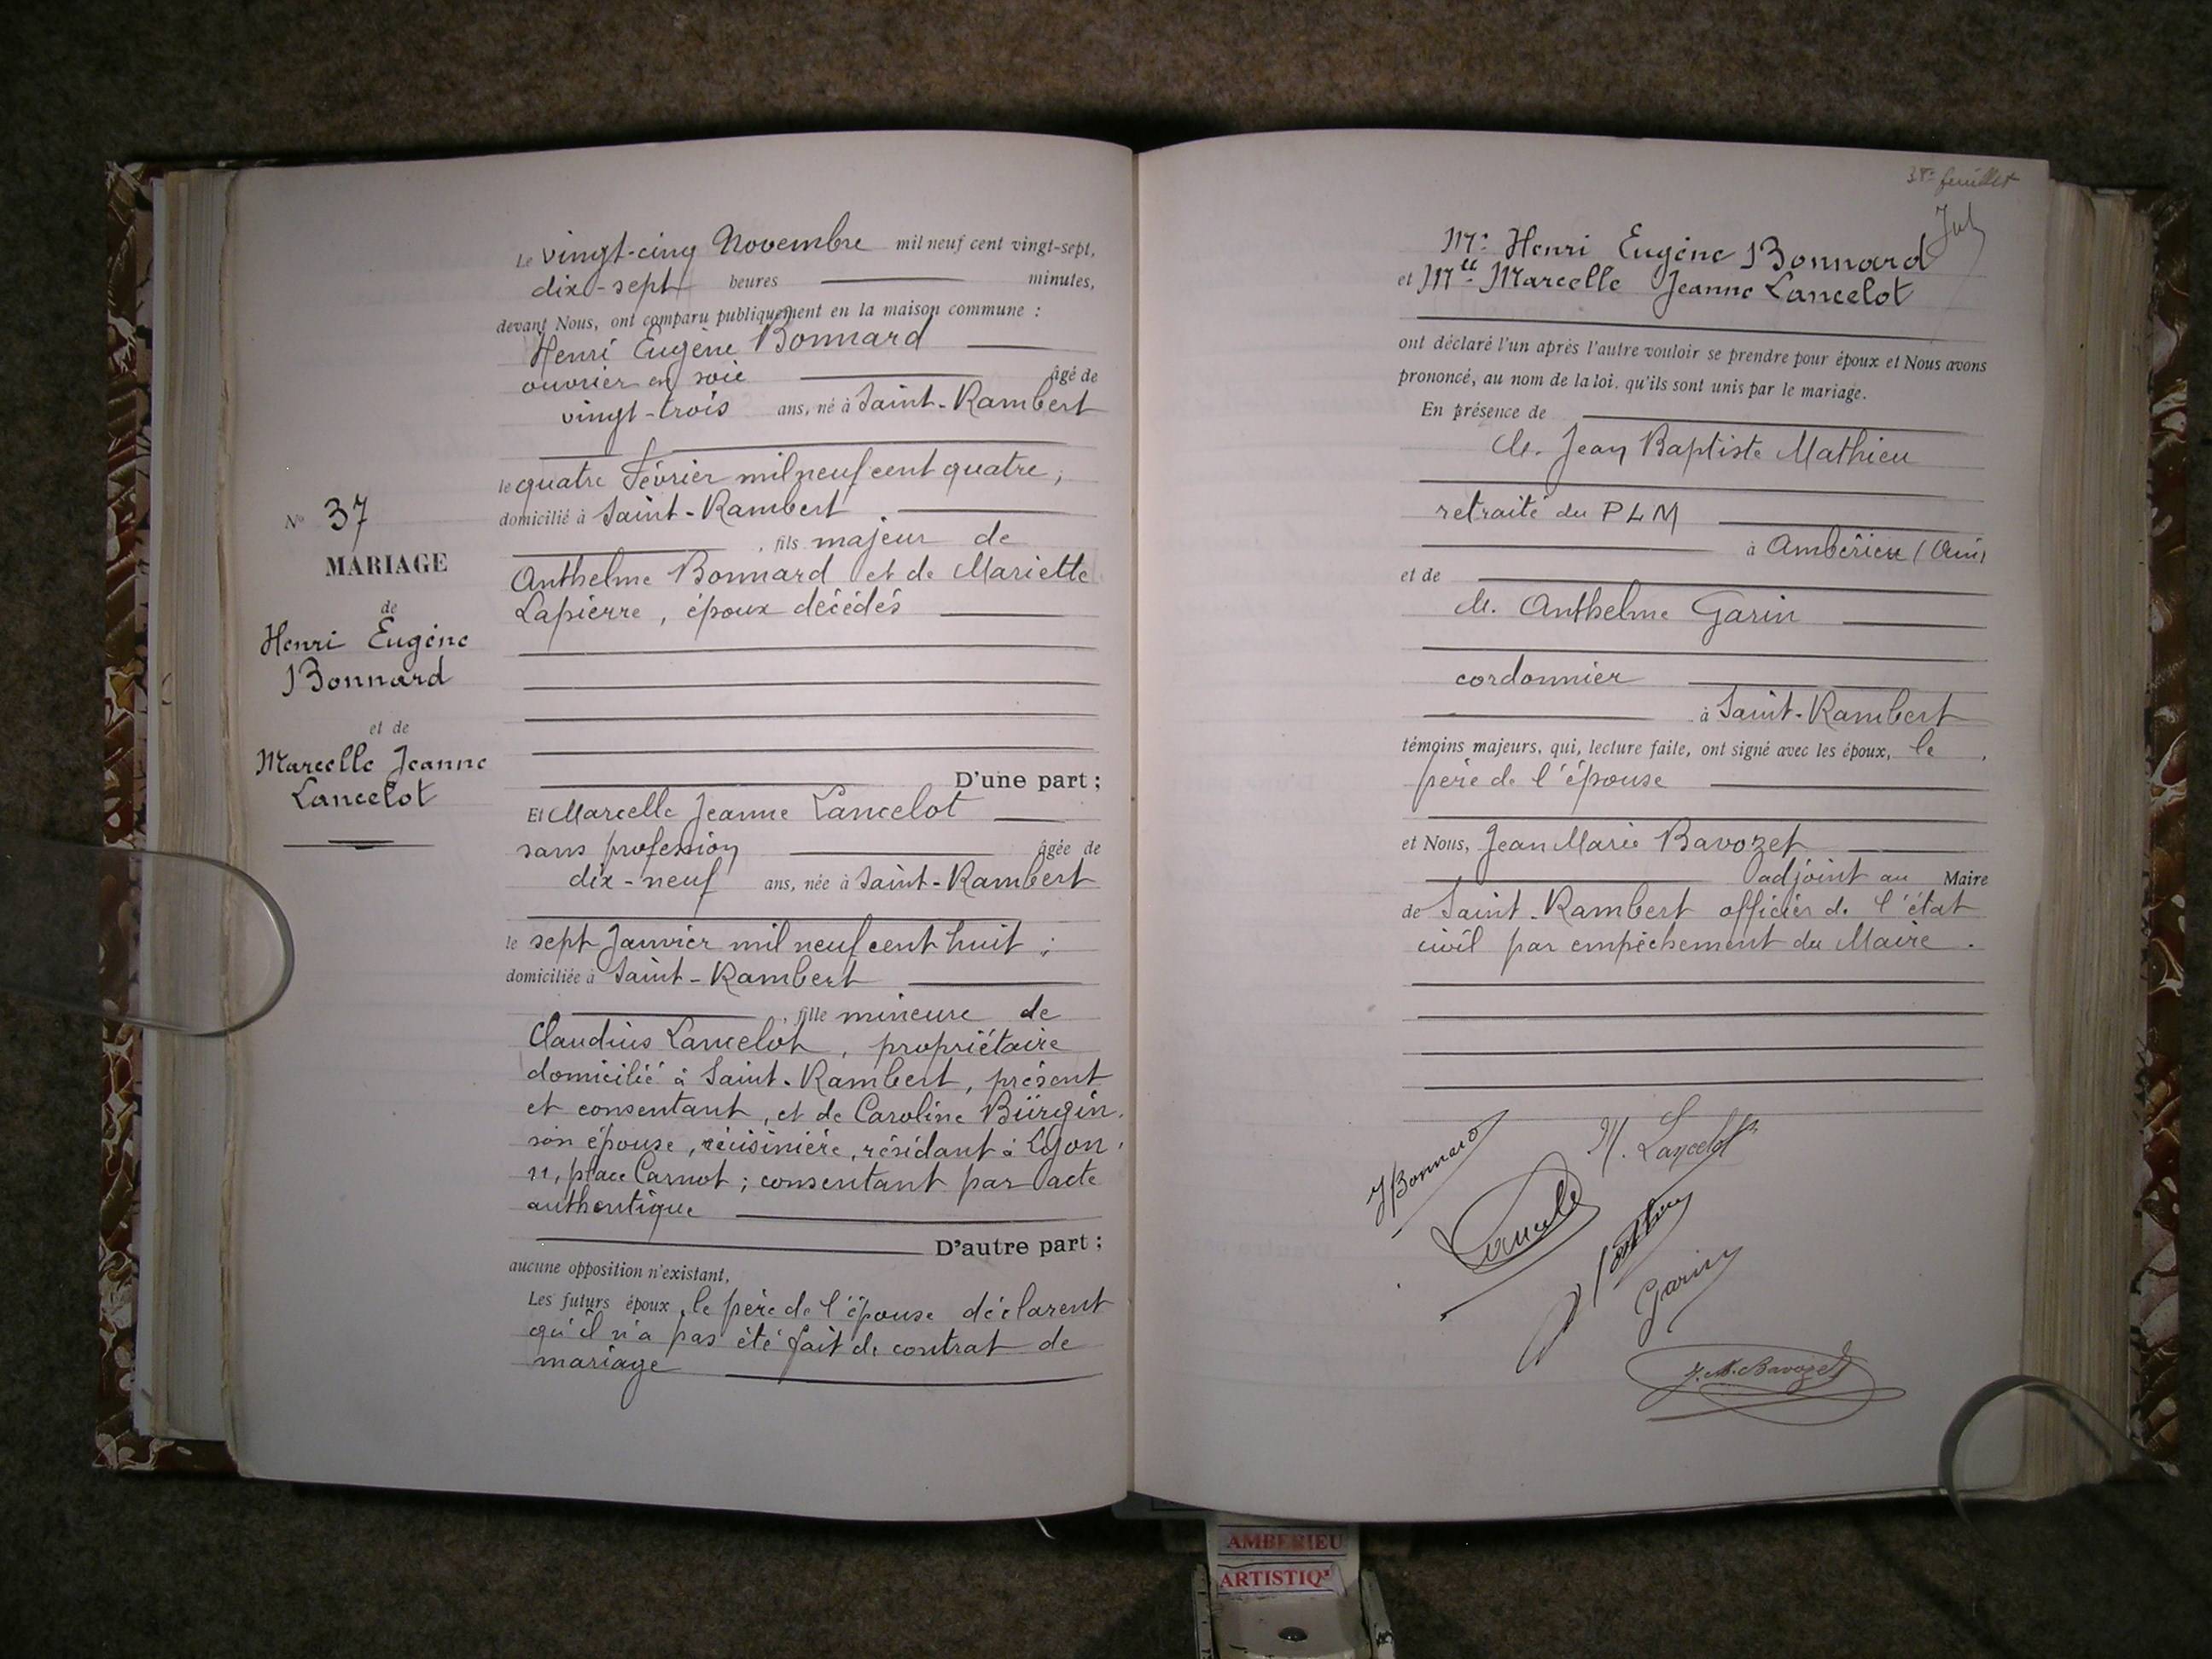 Le vingt-cinq Novembre mil neuf cent vingt-sept,
dix-sept heures minutes,
devant Nous, ont comparu publiquement en la maison commune :
Henri Eugène Bonnard
ouvrier en soie âgé de
vingt-trois ans, né à Saint-Rambert
le quatre Février mil neuf cent quatre,
domicilié à Saint-Rambert
, fils majeur de
Anthelme Bonnard et de Mariette
Lapierre, époux décédés
D'une part ;
Et Marcelle Jeanne Lancelot
sans profession âgée de
dix-neuf ans, née à Saint-Rambert
le sept Janvier mil neuf cent huit ;
domiciliée à Saint-Rambert
, fille mineure de
Claudius Lancelot, propriétaire
domicilié à Saint-Rambert, présent
et consentant, et de Caroline Bürgin,
son épouse, cuisinière, résidant à Lyon,
11, place Carnot ; consentant par acte
authentique
D'autre part ;
aucune opposition n'existant,
Les futurs époux, le père de l'épouse déclarent
qu'il n'a pas été fait de contrat de
mariage
No 37
MARIAGE
de
Henri Eugène
Bonnard
et de
Marcelle Jeanne
Lancelot
38e feuillet
Mr Henri Eugène Bonnard
et Mlle Marcelle Jeanne Lancelot
ont déclaré l'un après l'autre vouloir se prendre pour époux et Nous avons
prononcé, au nom de la loi, qu'ils sont unis par le mariage.
En présence de
M. Jean Baptiste Mathieu
retraité du PLM
à Ambérieu (Ain)
et de
M. Anthelme Garin
cordonnier
à Saint-Rambert
témoins majeurs, qui, lecture faite, ont signé avec les époux, le
père de l'épouse
et Nous, Jean Marie Bavozet
adjoint au Maire
de Saint-Rambert officier de l'état
civil par empêchement du Maire.
HBonnard
M. Lancelot
Garin
J. M. Bavozet
AMBERIEU
ARTISTIQ